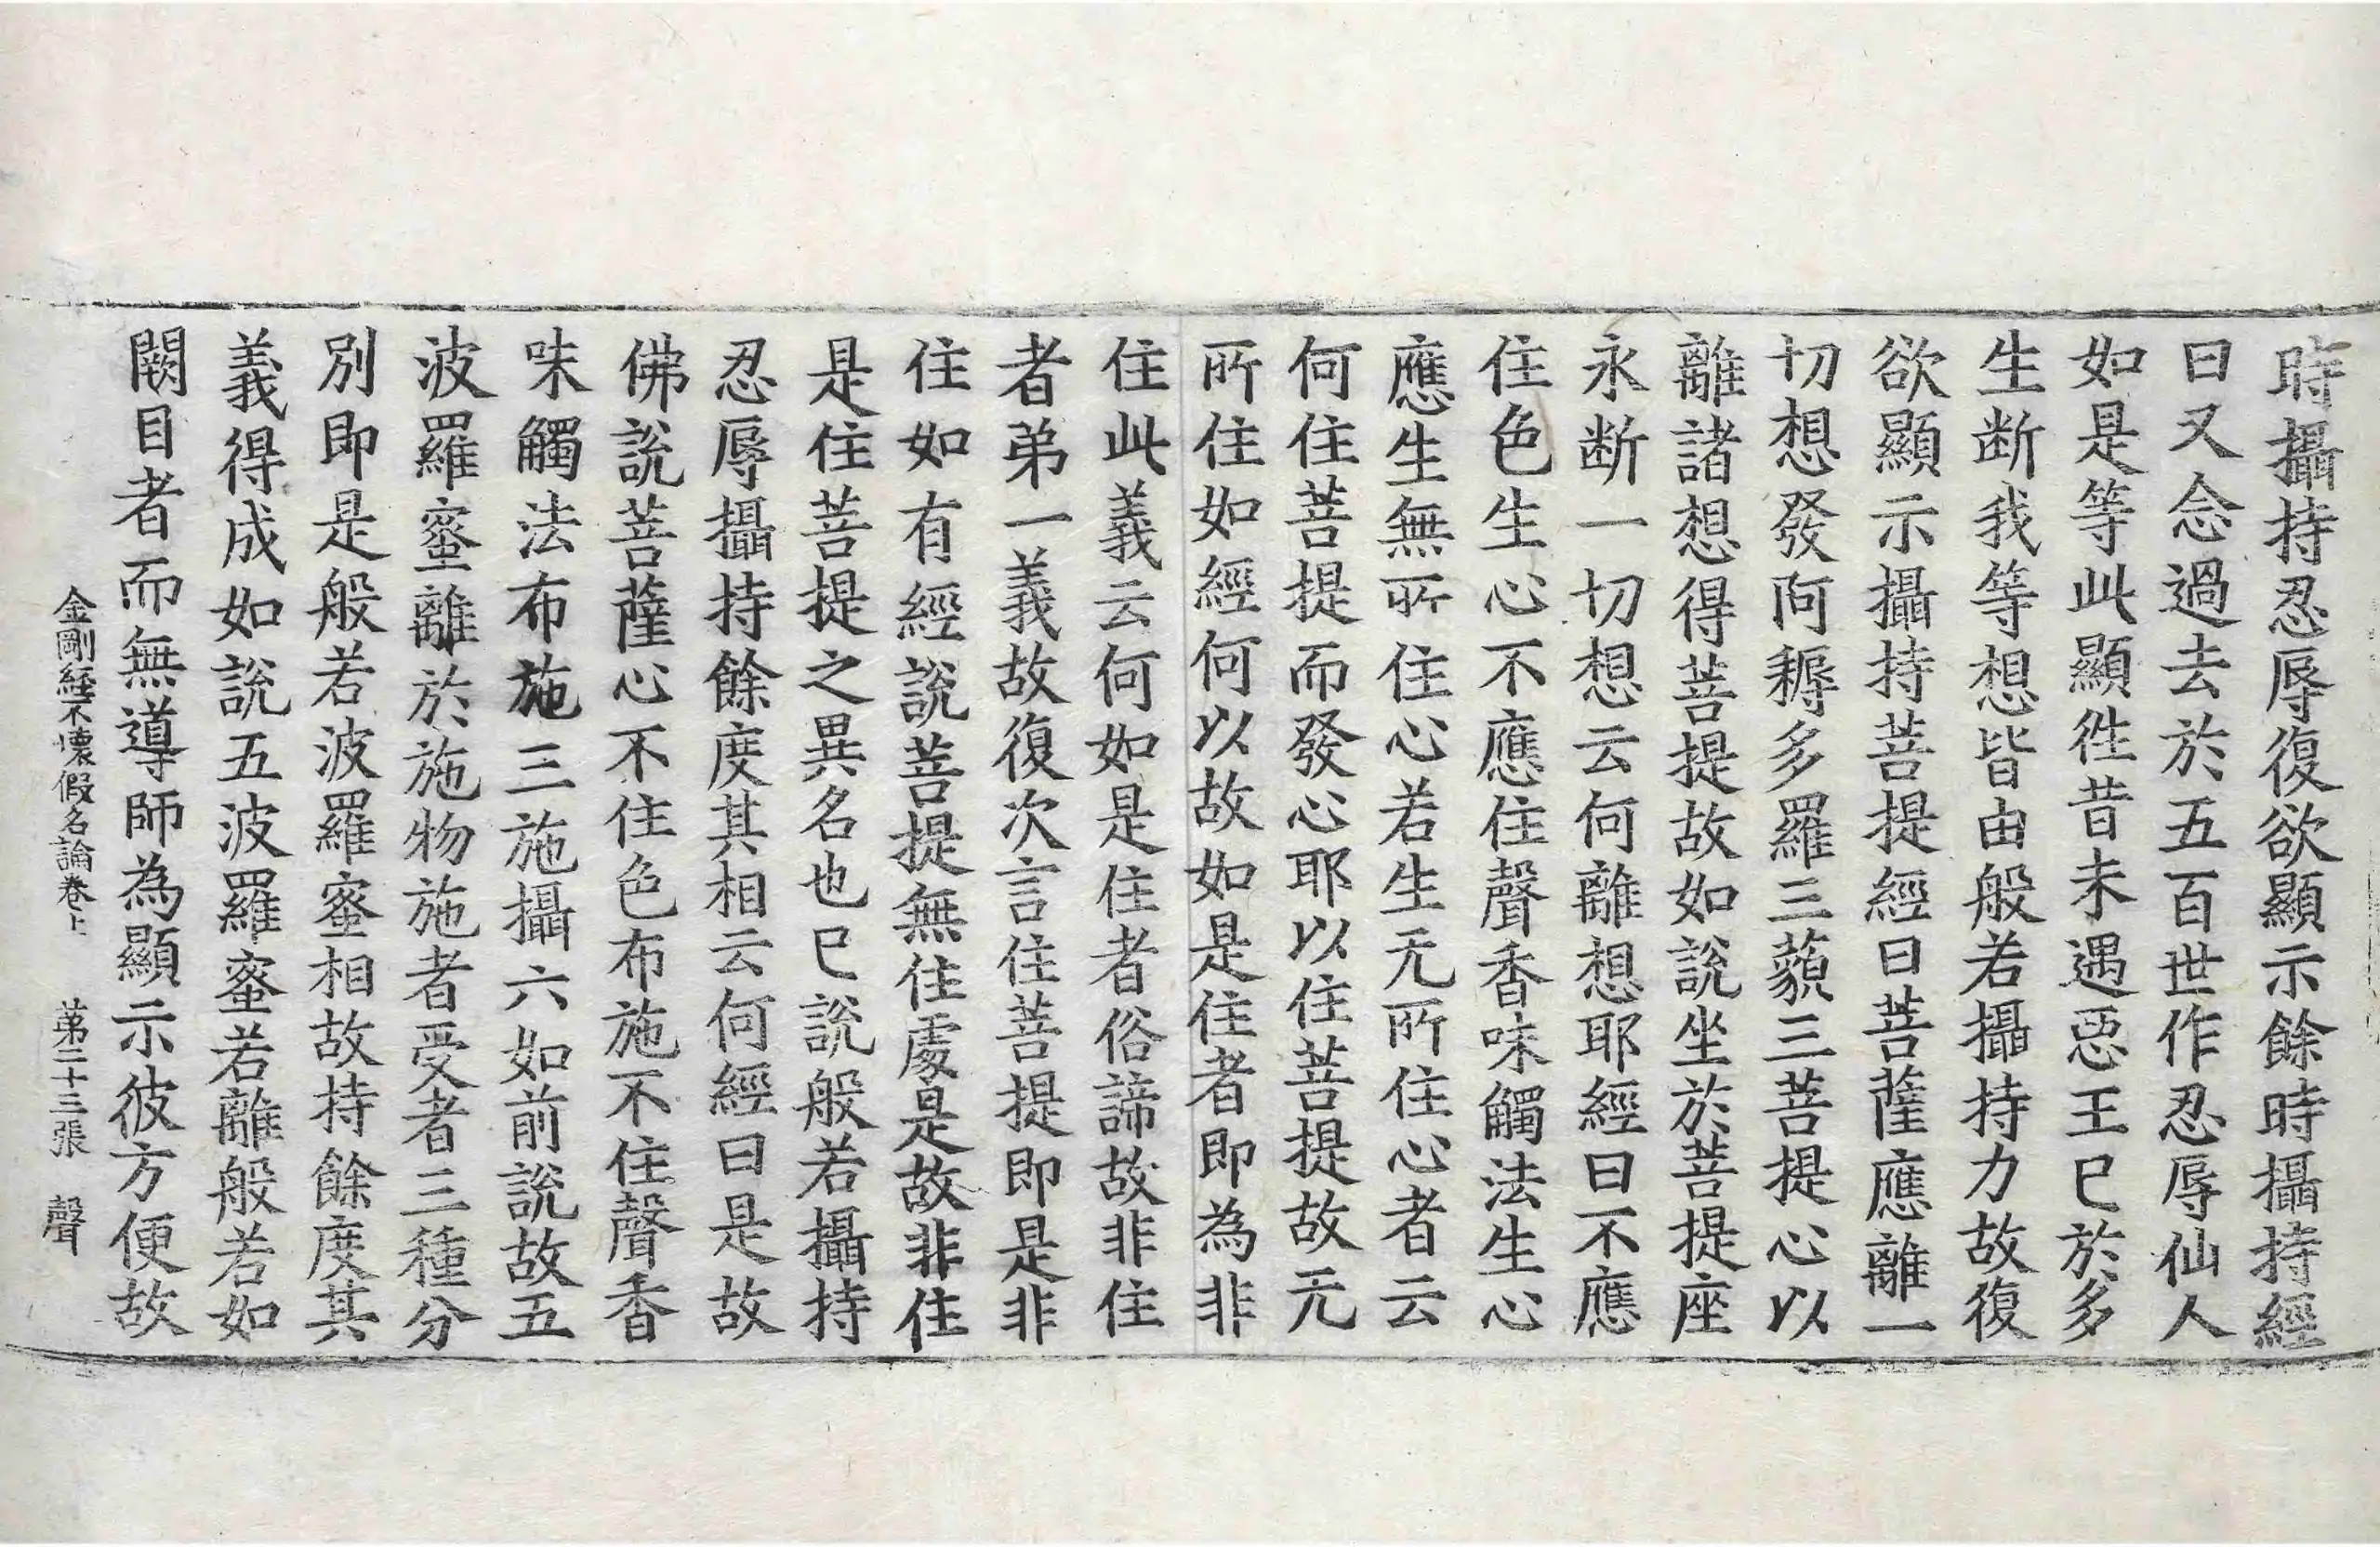 時攝持忍辱復欲顯示餘時攝持經
曰又念過去於五百世作忍辱仙人
如是等此顯徃昔未遇惡王已於多
生断我等想皆由般若攝持力故復
欲顯示攝持菩提經曰菩薩應離一
切想發阿耨多羅三藐三菩提心以
離諸想得菩提故如說坐於菩提座
永断一切想云何離想耶經曰不應
住色生心不應住聲香味觸法生心
應生無所住心若生无所住心者云
何住菩提而發心耶以住菩提故无
所住如經何以故如是住者即為非
住此義云何如是住者俗諦故非住
者苐一義故復次言住菩提即是非
住如有經說菩提無住處是故非住
是住菩提之異名也已說般若攝持
忍辱攝持餘度其相云何經曰是故
佛說菩薩心不住色布施不住聲香
味觸法布施三施攝六如前說故五
波羅蜜離於施物施者受者三種分
別即是般若波羅蜜相故持餘度其
義得成如說五波羅蜜若離般若如
闕目者而無導師為顯示彼方便故
金剛經不壞假名論卷上 苐二十三張 聲